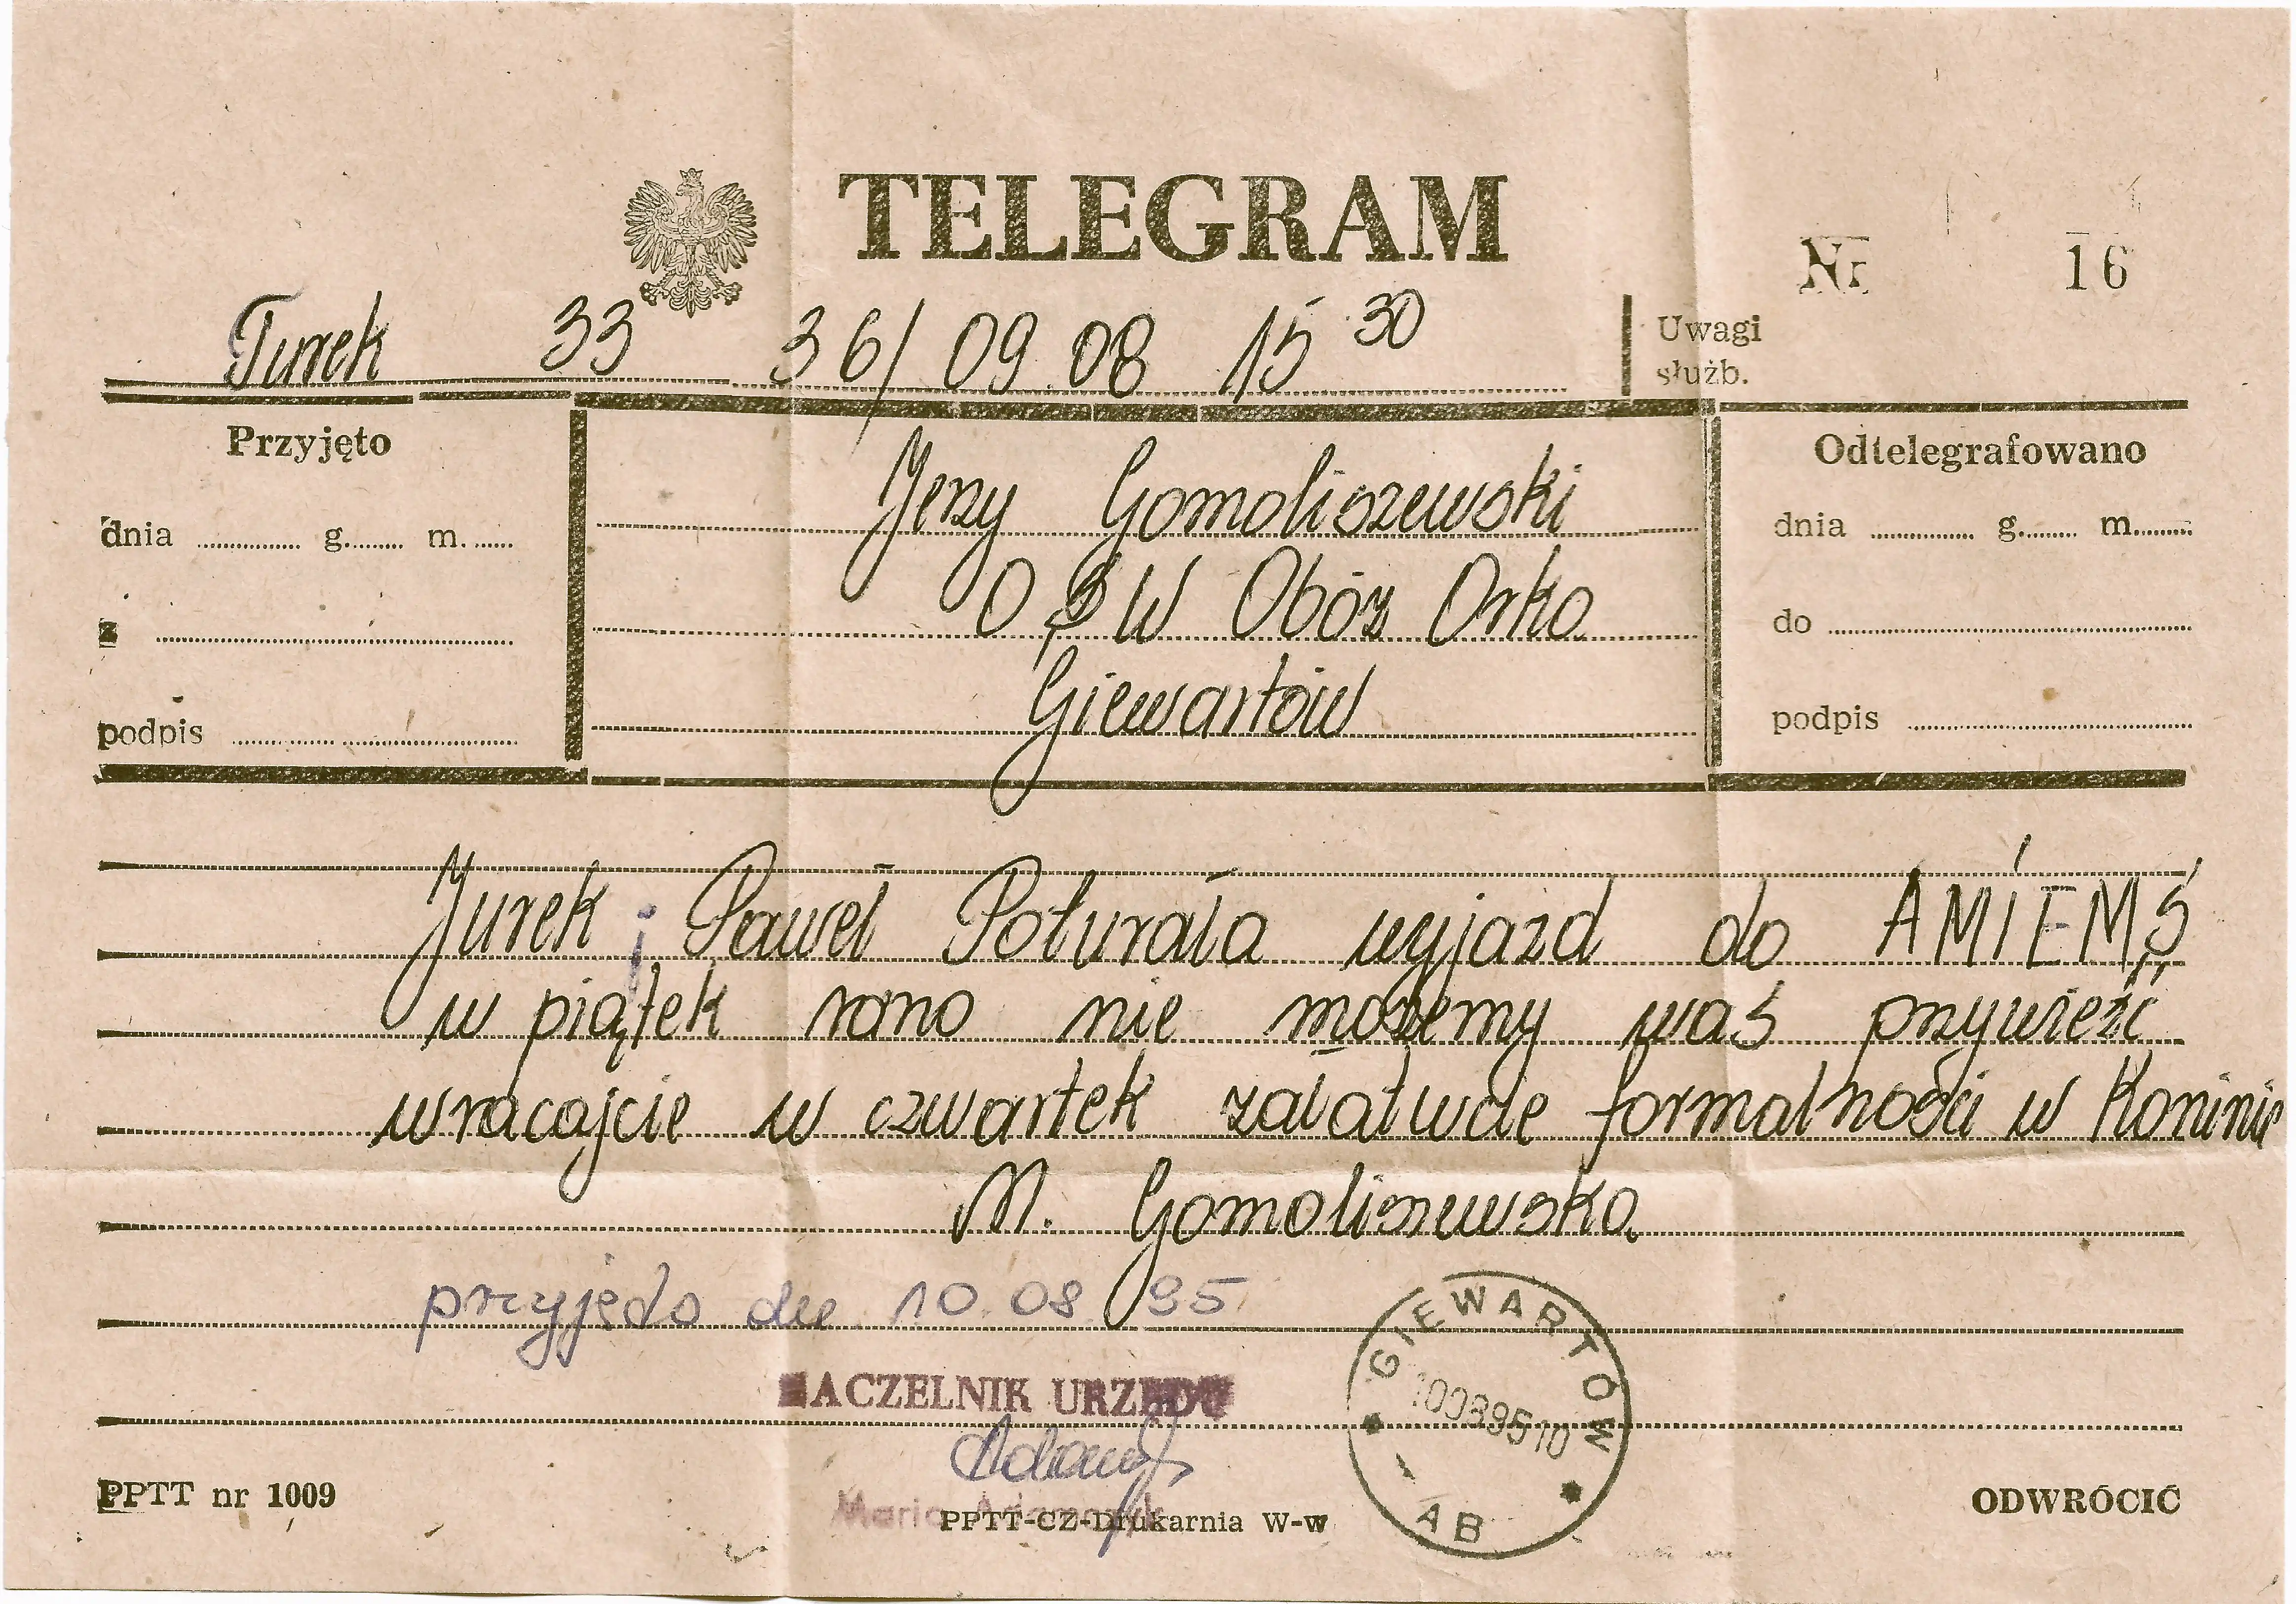 TELEGRAM
Nr 16
Turek 33 36/ 09 08 15 30
Uwagi
służb.
Przyjęto
dnia g. m.
z
podpis
Jerzy Gomoliszewski
OSW Obóz Orka
Giewartów
Odtelegrafowano
dnia g. m.
do
podpis
Jurek i Paweł Poturała wyjazd do AMIEMS
w piątek rano nie możemy was przywieźć
wracajcie w czwartek załatwcie formalności w Koninie
M. Gomoliszewska
przyjęto dn. 10.08 95
NACZELNIK URZĘDU
Maria
GIEWARTÓW
10089510
AB
PPTT nr 1009
PPTT-CZ-Drukarnia W-w
ODWRÓCIĆ